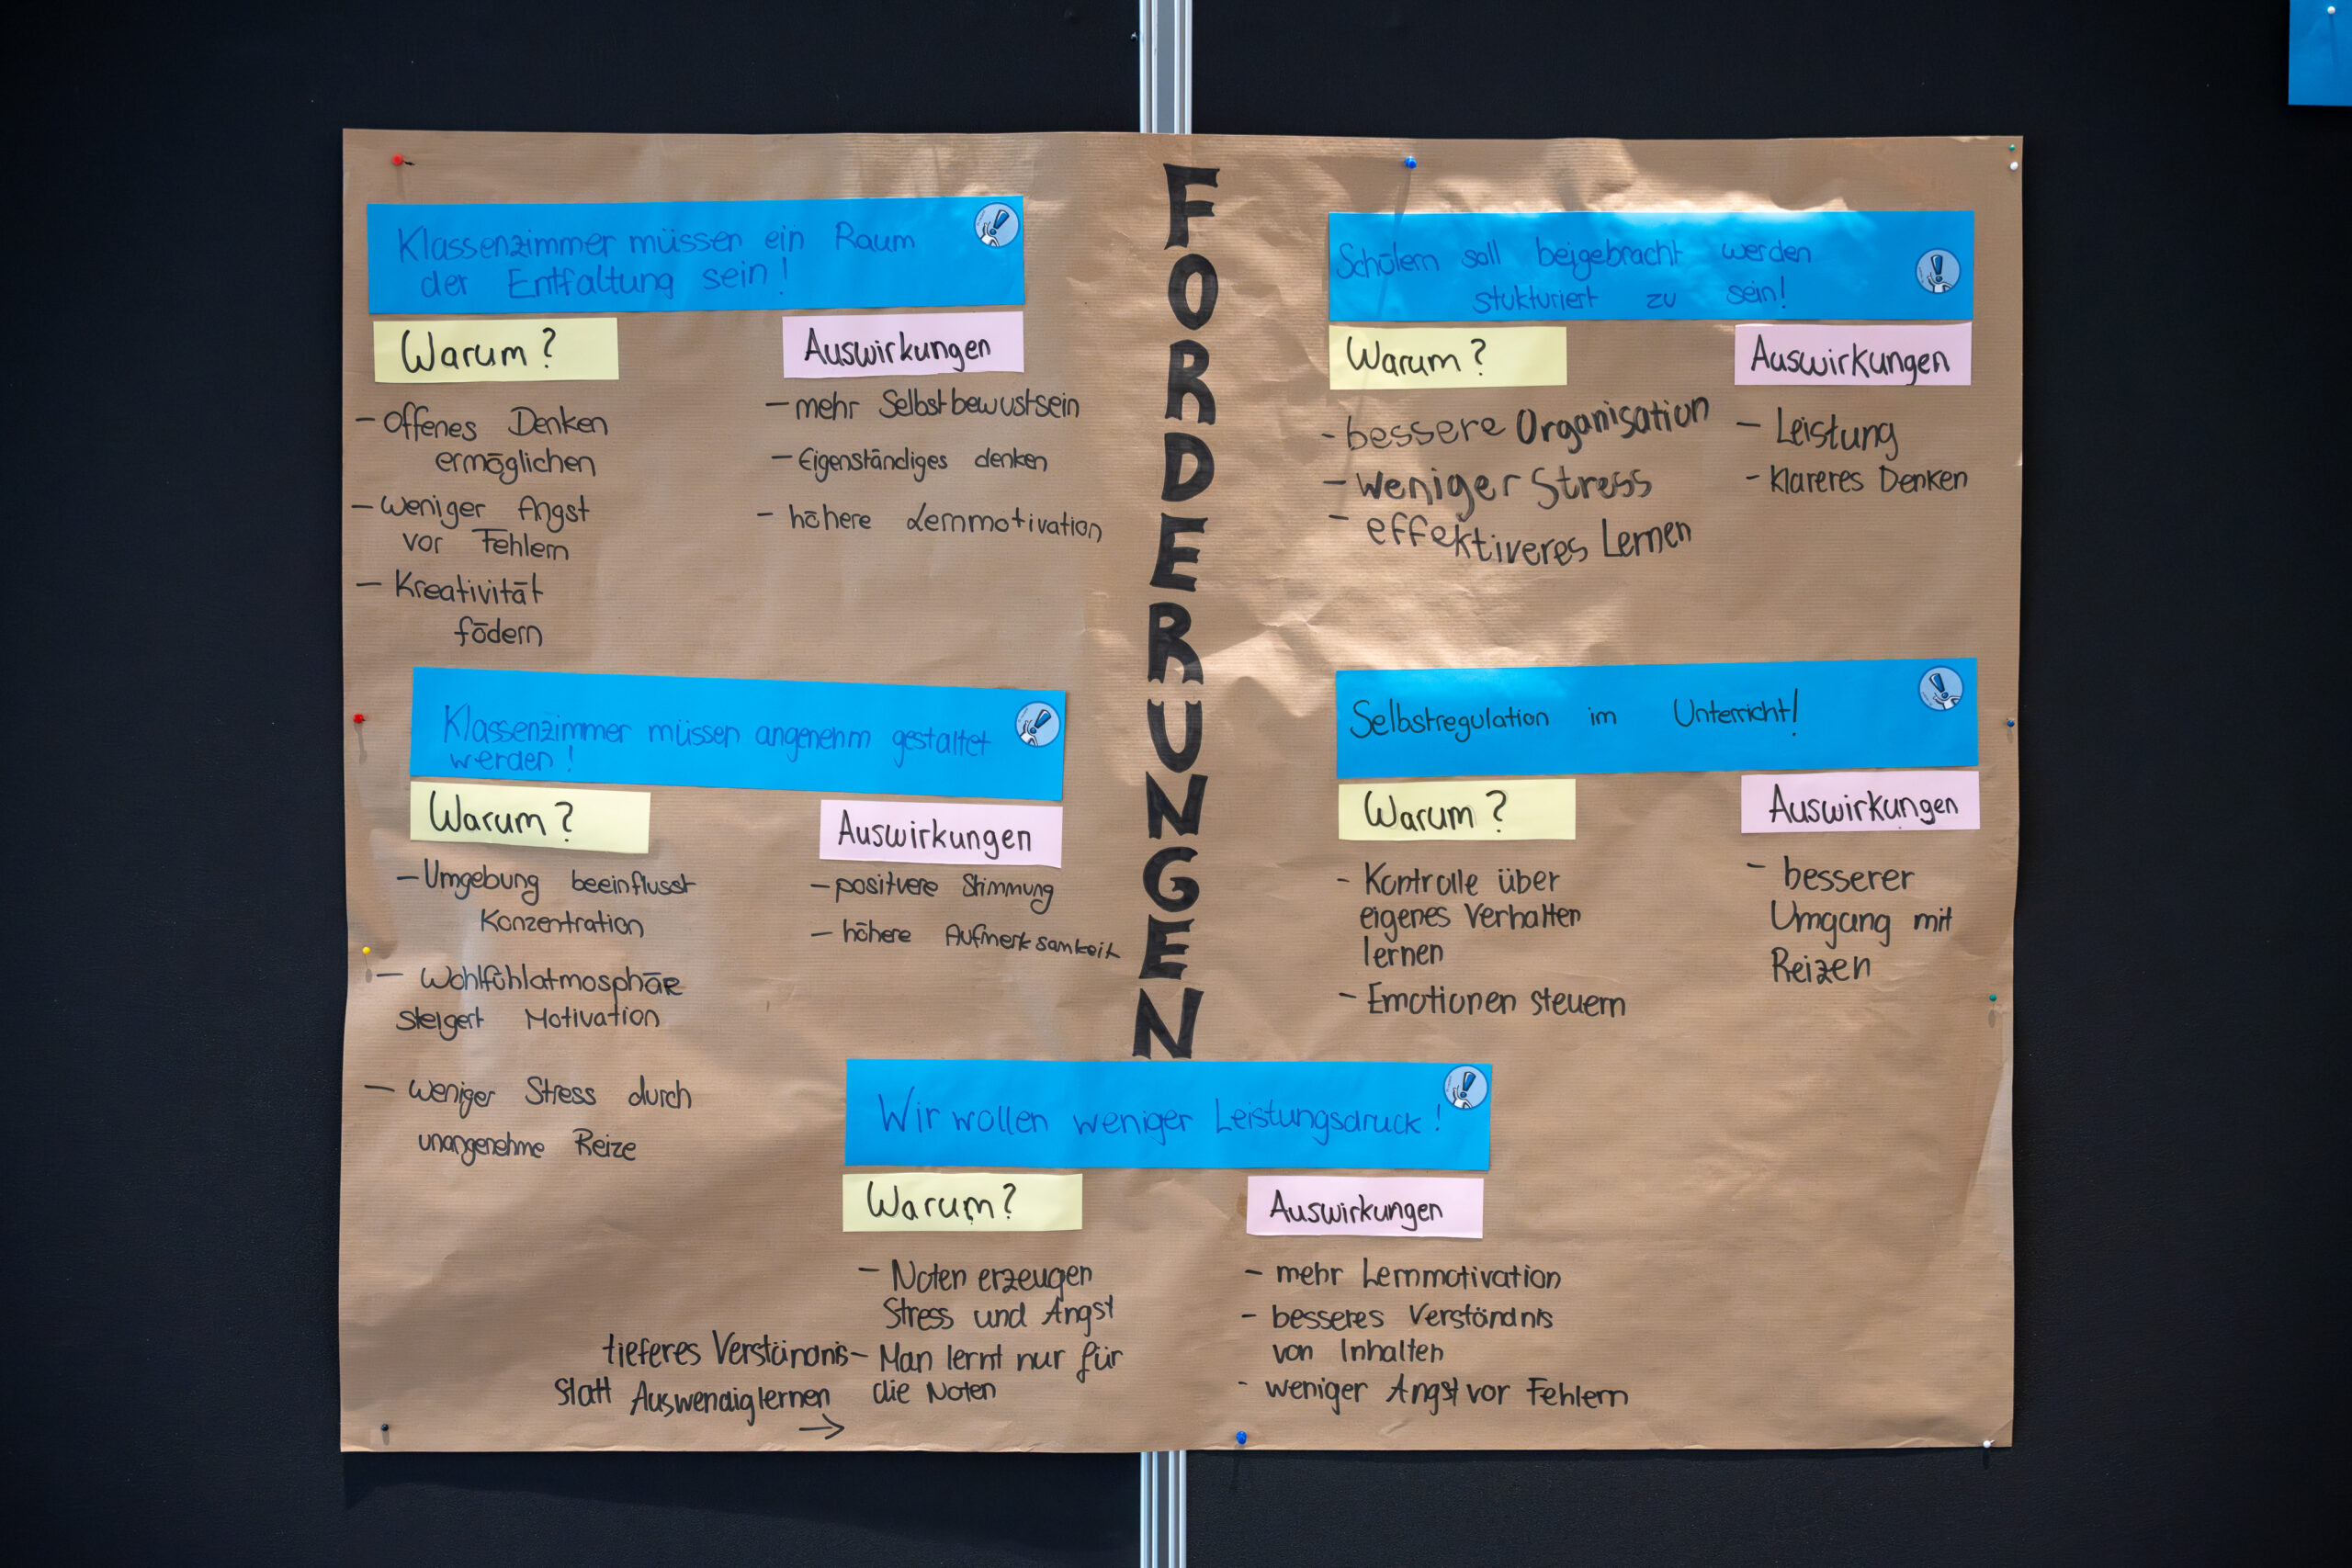 FORDERUNGEN
Klassenzimmer müssen ein Raum
der Entfaltung sein!
Warum?
- Offenes Denken
ermöglichen
- weniger Angst
vor Fehlern
- Kreativität
födern
Auswirkungen
- mehr Selbstbewustsein
- Eigenständiges denken
- höhere Lernmotivation
Schülern soll beigebracht werden
stukturiert zu sein!
Warum?
- bessere Organisation
- weniger Stress
- effektiveres Lernen
Auswirkungen
- Leistung
- klareres Denken
Klassenzimmer müssen angenehm gestaltet
werden!
Warum?
- Umgebung beeinflusst
Konzentration
- Wohlfühlatmosphäre
steigert Motivation
- weniger Stress durch
unangenehme Reize
Auswirkungen
- positvere Stimmung
- höhere Aufmerksamkeit
Selbstregulation im Unterricht!
Warum?
- Kontrolle über
eigenes Verhalten
lernen
- Emotionen steuern
Auswirkungen
- besserer
Umgang mit
Reizen
Wir wollen weniger Leistungsdruck!
Warum?
- Noten erzeugen
Stress und Angst
- Man lernt nur für
die Noten
tieferes Verständnis
statt Auswendiglernen
→
Auswirkungen
- mehr Lernmotivation
- besseres Verständnis
von Inhalten
- weniger Angst vor Fehlern